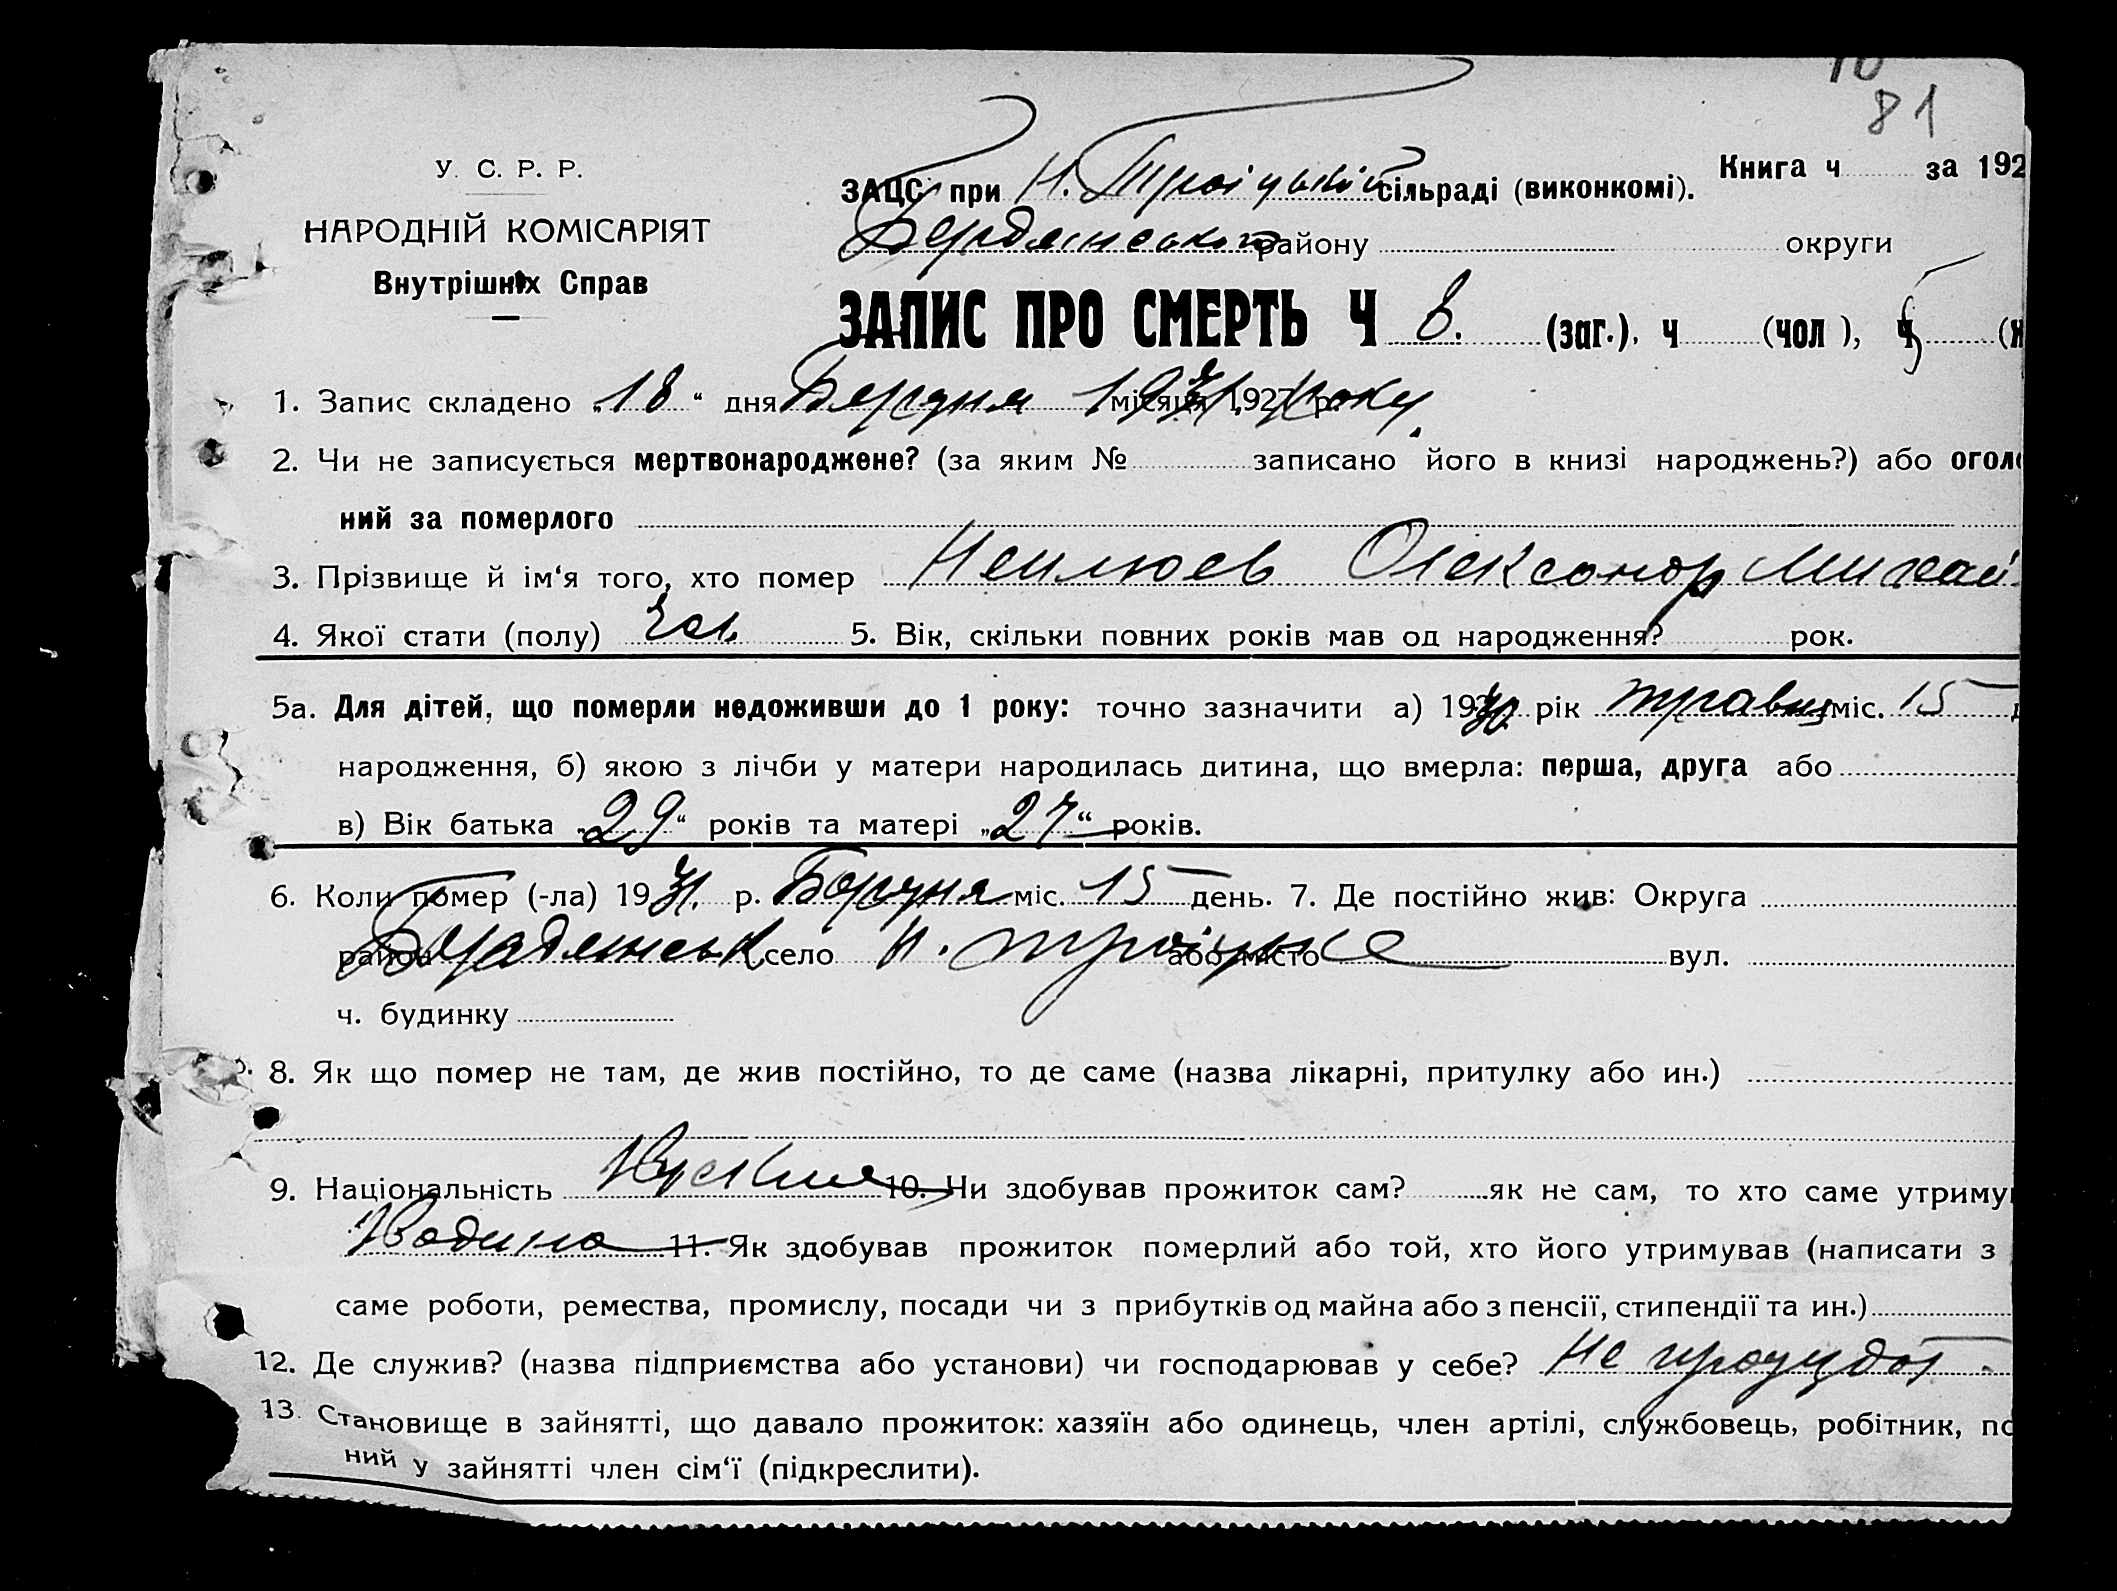 81
У. С. Р. Р.
НАРОДНІЙ КОМІСАРІЯТ
Внутрішніх Справ
Книга ч за 192
ЗАЦС при Н. Троіцькій сільраді (виконкомі).
Бердянського району округи
ЗАПИС ПРО СМЕРТЬ Ч 8. (заг.), ч (чол ), ч 5 (ж
1. Запис складено „18“ дня місяця 1927 р. 1931 року
2. Чи не записується мертвонароджене? (за яким № записано його в книзі народжень?) або оголо
ний за померлого
3. Прізвище й ім‘я того, хто помер Олександр Михай
4. Якої стати (полу) Чол. 5. Вік, скільки повних років мав од народження? рок.
5а. Для дітей, що померли недоживши до 1 року: точно зазначити а) 1930 рік травня міс. 15
народження, б) якою з лічби у матери народилась дитина, що вмерла: перша, друга або
в) Вік батька „29“ років та матері „27“ років.
6. Коли помер (-ла) 1931. р. міс. 15 день. 7. Де постійно жив: Округа
район Бердянськ село Н. Троіцьке або місто вул.
ч. будинку
8. Як що помер не там, де жив постійно, то де саме (назва лікарні, притулку або ин.)
9. Національність 10. Чи здобував прожиток сам? як не сам, то хто саме утриму
11. Як здобував прожиток померлий або той, хто його утримував (написати з
саме роботи, ремества, промислу, посади чи з прибутків од майна або з пенсії, стипендії та ин.)
12. Де служив? (назва підприємства або установи) чи господарював у себе? Не
13. Становище в зайнятті, що давало прожиток: хазяїн або одинець, член артілі, службовець, робітник, по
ний у зайнятті член сім‘ї (підкреслити).